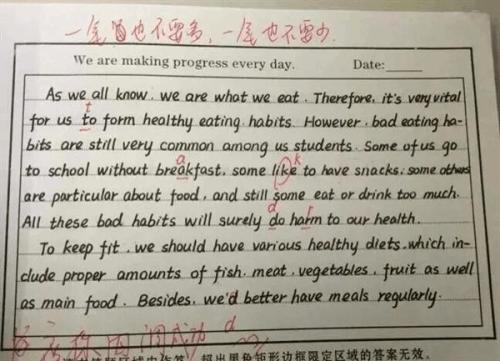 一尾首也不要多,一尾也不要少.
We are making progress every day. Date:
As we all know, we are what we eat. Therefore, it's very vital
t
for us to form healthy eating habits. However, bad eating ha-
bits are still very common among us students. Some of us go
a k
to school without breakfast, some like to have snacks, some others
are particular about food, and still some eat or drink too much.
d r
All these bad habits will surely do harm to our health.
To keep fit, we should have various healthy diets, which in-
clude proper amounts of fish, meat, vegetables, fruit as well
as main food. Besides, we'd better have meals regularly.
d
超出黑色矩形边框限定区域的答案无效。